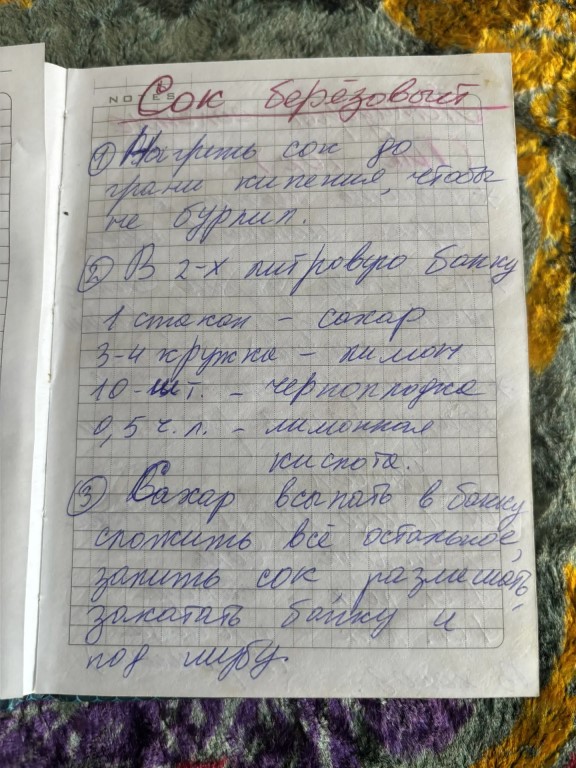 NOTES
Сок берёзовый
1 Нагреть сок до
грани кипения, чтобы
не бурлил.
2 В 2-х литровую банку
1 стакан - сахар
3-4 кружка - лимон
10-шт. - черноплодка
0,5 ч.л. - лимонная
кислота.
3 Сахар всыпать в банку
сложить всё остальное,
залить сок, размешать,
закатать банку и
под шубу.